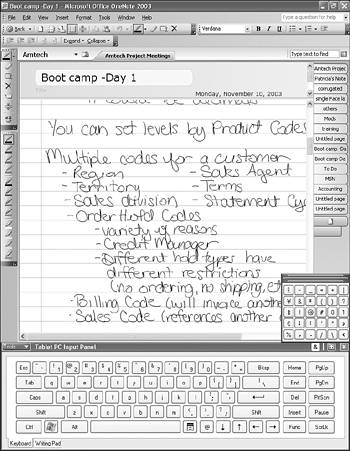 Boot camp -Day 1 - Microsoft Office OneNote 2003
Type a question for help
Back
Verdana
Expand Collapse
Amtech
Amtech Project Meetings
Type text to find
Boot camp -Day 1
Monday, November 10, 2003
You can set levels by Product Codes
Multiple codes for a customer
- Region - Sales Agent
- Territory - Terms
- Sales division - Statement Cyc
- Order Hold Codes
- variety of reasons
- Credit Manager
- Different hold types have
different restrictions
(no ordering, no shipping, etc
- Billing Code (will invoice anothe
- Sales Code (references another
Amtech Projec
Patricia's Note
corrugated
single face la
others
Mods
training
Untitled page
Boot camp -Da
Boot camp De
To Do
MSN
Accounting
Untitled page
Untitled page
Tools
Tablet PC Input Panel
Esc ` 1 2 3 4 5 6 7 8 9 0 - = Bksp Home PgUp
Tab q w e r t y u i o p [ ] \ End PgDn
Caps a s d f g h j k l ; ' Del PrtScn
Shift z x c v b n m , . / Shift Insert Pause
Ctrl Alt Func ScrLk
Keyboard Writing Pad